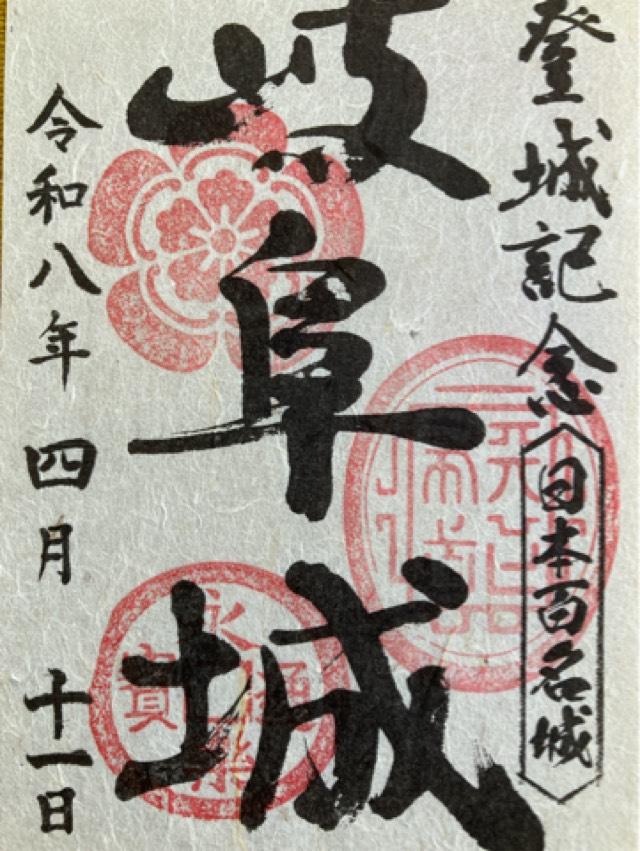 登城記念
日本百名城
岐阜城
令和八年四月十一日